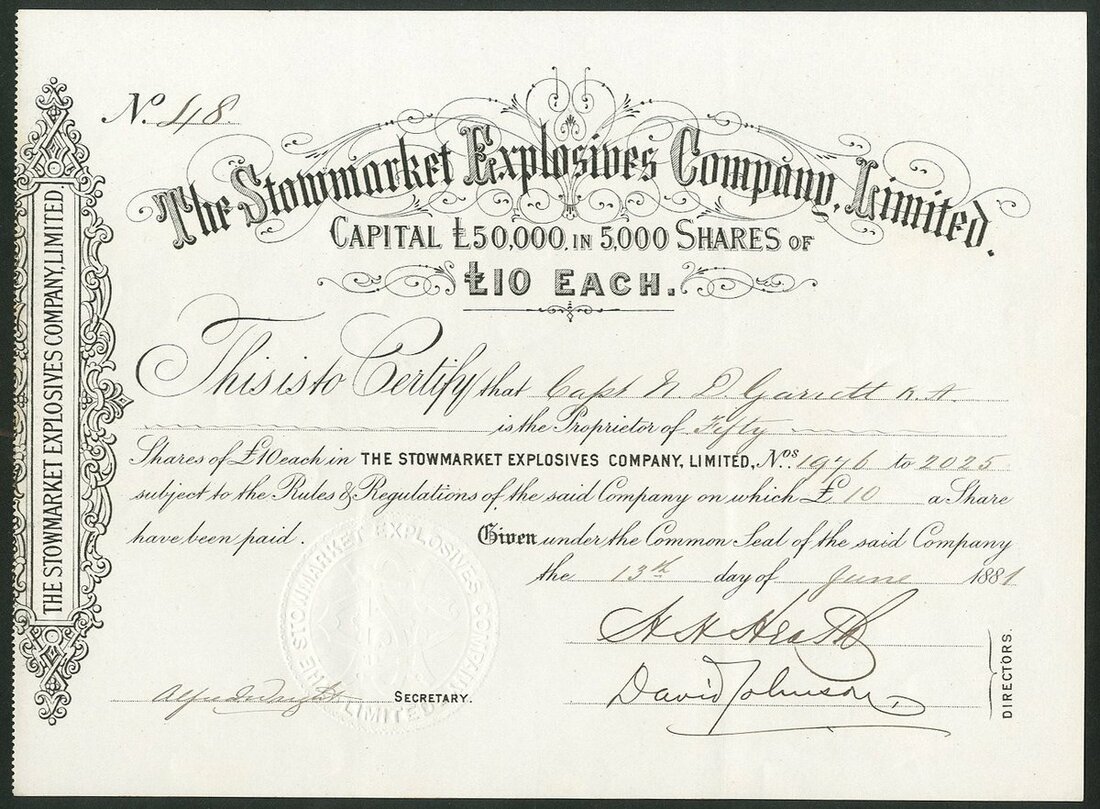 No. 48
The Stowmarket Explosives Company, Limited.
CAPITAL £50,000. IN 5,000 SHARES OF
£10 EACH.
This is to Certify that Capt N. D. Garrett R.A.
is the Proprietor of Fifty
Shares of £10 each in THE STOWMARKET EXPLOSIVES COMPANY, LIMITED, Nos. 1976 to 2025
subject to the Rules & Regulations of the said Company on which £ 10 a Share
have been paid. Given under the Common Seal of the said Company
the 13th day of June 1881
H H Heath
David Johnson
DIRECTORS.
Alfred Wright SECRETARY.
THE STOWMARKET EXPLOSIVES COMPANY LIMITED
THE STOWMARKET EXPLOSIVES COMPANY, LIMITED